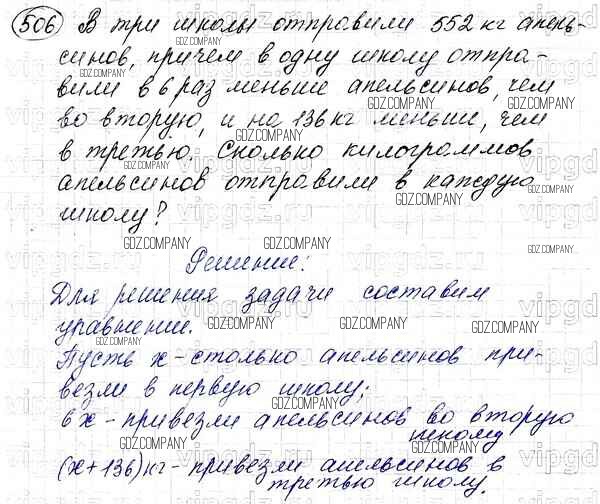 506 В три школы отправили 552 кг апель-
синов, причем в одну школу отпра-
вили в 6 раз меньше апельсинов, чем
во вторую, и на 136 кг меньше, чем
в третью. Сколько килограммов
апельсинов отправили в каждую
школу?
Решение:
Для решения задачи составим
уравнение.
Пусть x - столько апельсинов при-
везли в первую школу;
6x - привезли апельсинов во вторую
школу
(x+136) кг - привезли апельсинов в
третью школу